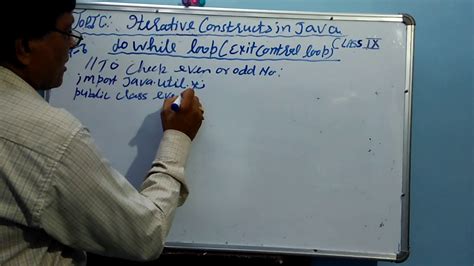 TOPIC: Iterative Constructs in Java
do while loop (exit control loop) CLASS IX
// To check even or odd No.
import java.util.*;
public class even